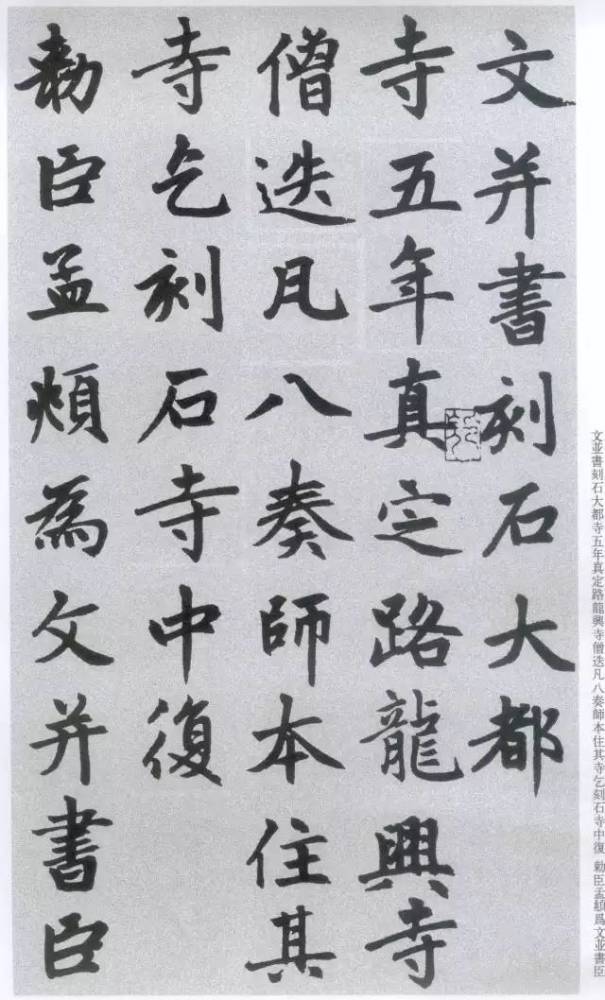 文并書刻石大都
寺五年真定路龍興寺
僧迭凡八奏師本住其
寺乞刻石寺中復
勑臣孟頫為文并書臣
文並書刻石大都寺五年真定路龍興寺僧迭凡八奏師本住其寺乞刻石寺中復 勑臣孟頫爲文並書臣